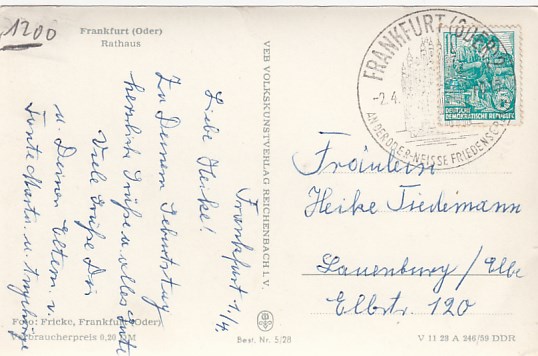 1200
Frankfurt (Oder)
Rathaus
Frankfurt 1./4.
Liebe Heike!
Zu Deinem Geburtstag
herzliche Grüße u. alles Gute
Viele Grüße Dir
u. Deinen Eltern v.
Tante Martn. u. Angehörige
Foto: Fricke, Frankfurt (Oder)
Verbraucherpreis 0,20 DM
VEB VOLKSKUNSTVERLAG REICHENBACH I. V.
Best. Nr. 5/28
FRANKFURT (ODER)
-2.4.
AN DER ODER-NEISSE FRIEDENSGR
DEUTSCHE
DEMOKRATISCHE REPUBLIK
Fräulein
Heike Tiedemann
Lauenburg / Elbe
Elbstr. 120
V 11 28 A 246/59 DDR